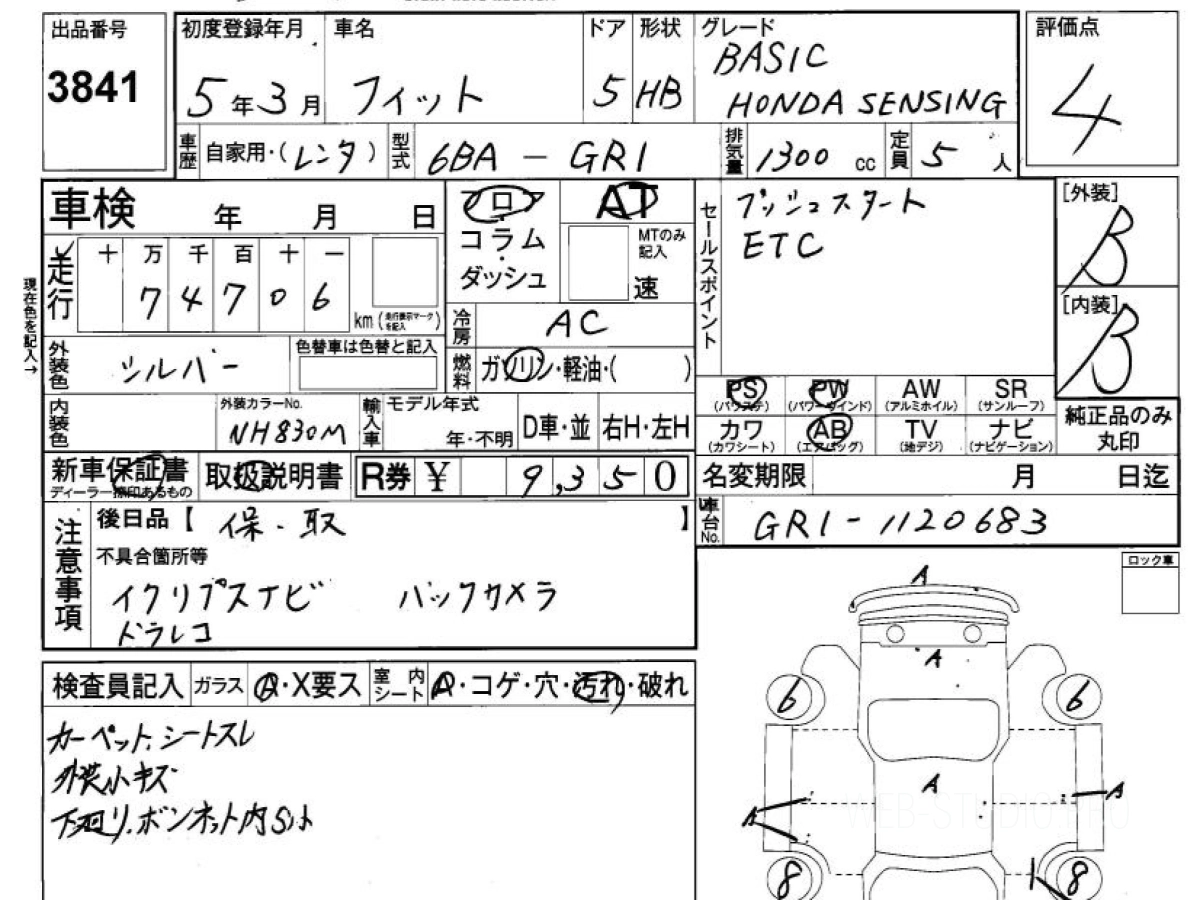 出品番号
3841
初度登録年月 車名 ドア 形状 グレード
5年3月 フィット 5 HB BASIC
HONDA SENSING
評価点
4
車歴 自家用・(レンタ) 型式 6BA - GR1 排気量 1300 cc 定員 5 人
車検 年 月 日
フロア
コラム
ダッシュ
AT
MTのみ
記入
速
セールスポイント
プッシュスタート
ETC
[外装]
B
[内装]
B
現在色を記入→
走行
十 万 千 百 十 一
7 4 7 0 6
km (走行表示マークを記入)
冷房 AC
外装色 シルバー
色替車は色替と記入
燃料 ガソリン・軽油・( )
PS AW SR
(パワステ) (パワーウインド) (アルミホイル) (サンルーフ)
PW
カワ AB TV ナビ
(カワシート) (エアバッグ) (地デジ) (ナビゲーション)
純正品のみ
丸印
内装色
外装カラーNo.
NH830M
輸入車
モデル年式
年・不明
D車・並 右H・左H
新車保証書
ディーラー捺印あるもの
取扱説明書
R券 ¥ 9,350
名変期限 月 日迄
車台No. GR1-1120683
注意事項
後日品【 保・取 】
不具合箇所等
イクリプスナビ バックカメラ
ドラレコ
ロック車
検査員記入 ガラス A・X要ス 室内シート A・コゲ・穴・汚れ・破れ
カーペット、シートスレ
外装小キズ
下廻り、ボンネット内サビ
A
A
6 6
A
A A
8 1 8
WEB-STUDIO.PRO